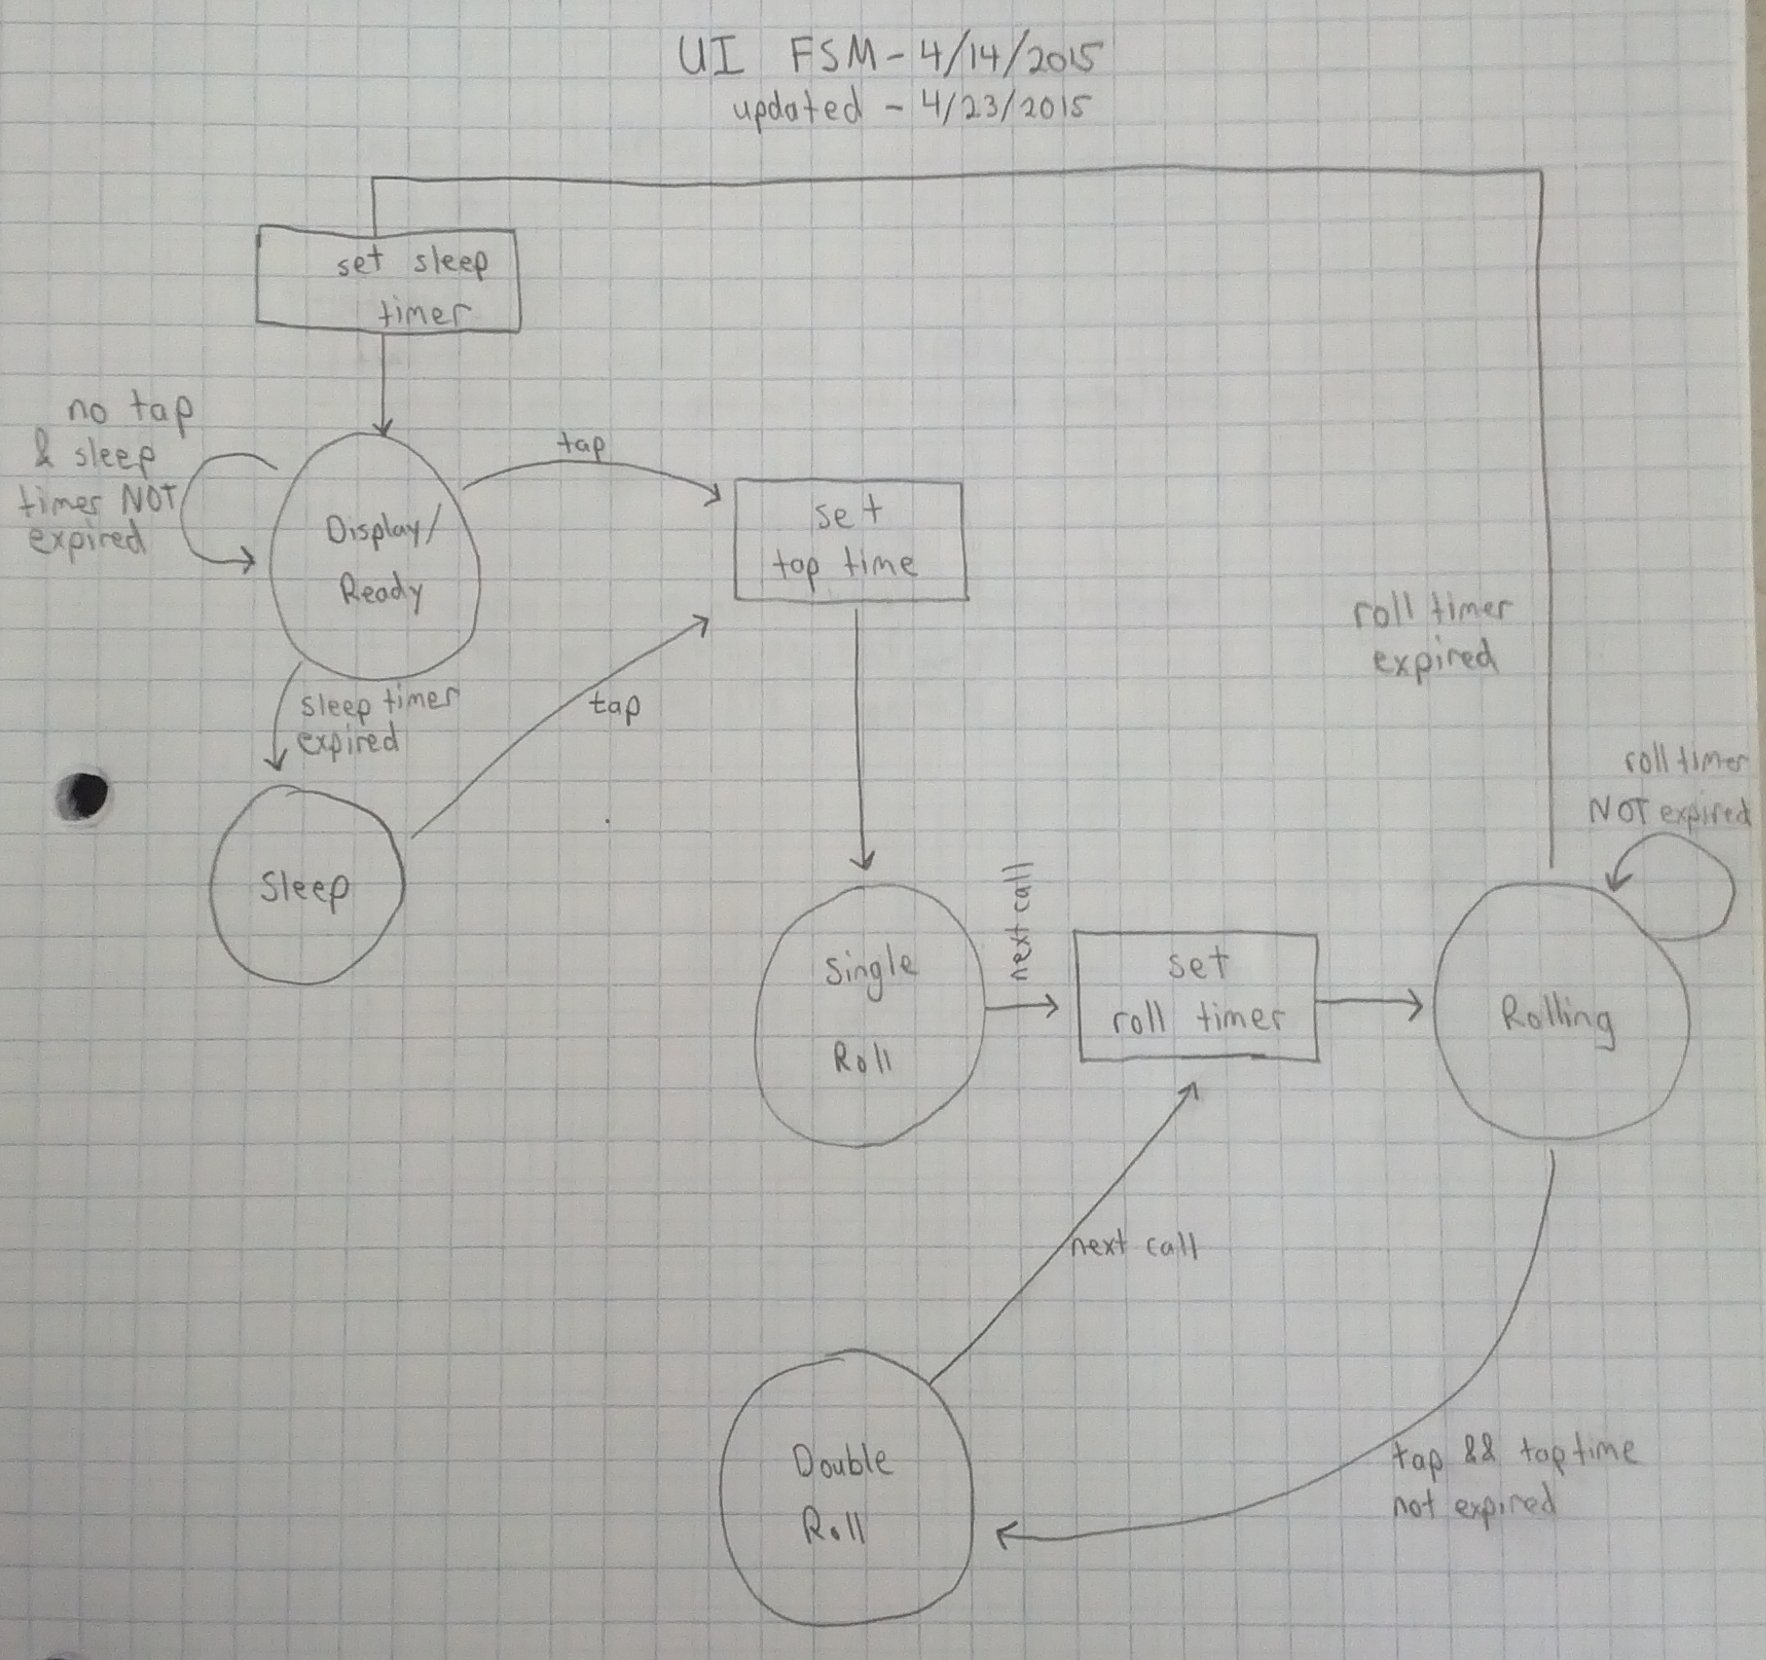 UI FSM - 4/14/2015
updated - 4/23/2015
set sleep
timer
no tap
& sleep
timer NOT
expired
tap
Display/
Ready
set
tap time
sleep timer
expired
tap
roll timer
expired
roll timer
NOT expired
Sleep
Single
Roll
next call
set
roll timer
Rolling
next call
Double
Roll
tap && tap time
not expired